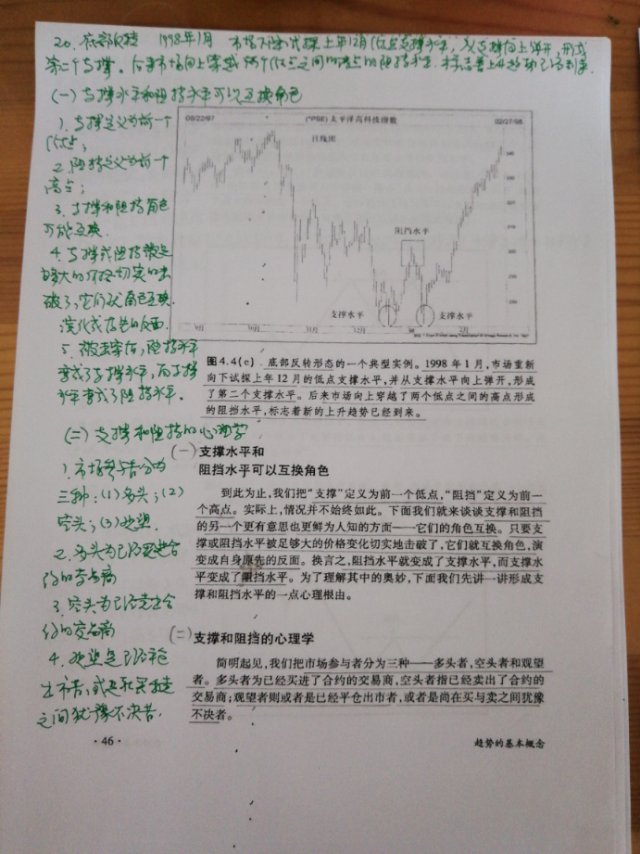 20. 底部反转 1998年1月 市场下探试探上年12月低点支撑水平，从支撑向上弹开，形成
第二个支撑。后来市场向上穿越两个低点之间的高点的阻挡水平，标志着上升趋势已经到来。
(一) 支撑水平和阻挡水平可以互换角色
1. 支撑定义为前一个
低点；
2. 阻挡定义为前一个
高点；
3. 支撑和阻挡角色
可能互换.
4. 支撑或阻挡被足
够大的价格切实的击
破了，它们就角色互换.
演化成原色的反面.
5. 被击穿后，阻挡水平
变成了支撑水平，而支撑
水平变成了阻挡水平。
(二) 支撑和阻挡的心理学
1. 市场参与者分为
三种：(1) 多头；(2)
空头；(3) 观望.
2. 多头为已经买进合
约的交易商
3. 空头为已经卖出合
约的交易商
4. 观望是已经平仓
出市者，或是在买和卖
之间犹豫不决者.
09/22/97
(^PSE)太平洋高科技指数
02/27/98
日线图
阻挡水平
支撑水平
支撑水平
340
320
300
280
260
10月
11月
12月
2月
图4.4(c) 底部反转形态的一个典型实例。1998年1月，市场重新
向下试探上年12月的低点支撑水平，并从支撑水平向上弹开，形成
了第二个支撑水平。后来市场向上穿越了两个低点之间的高点形成
的阻挡水平，标志着新的上升趋势已经到来。
(一) 支撑水平和
阻挡水平可以互换角色
到此为止，我们把“支撑”定义为前一个低点，“阻挡”定义为前一
个高点。实际上，情况并不始终如此。下面我们就来谈谈支撑和阻挡
的另一个更有意思也更鲜为人知的方面——它们的角色互换。只要支
撑或阻挡水平被足够大的价格变化切实地击破了，它们就互换角色，演
变成自身原先的反面。换言之，阻挡水平就变成了支撑水平，而支撑水
平变成了阻挡水平。为了理解其中的奥妙，下面我们先讲一讲形成支
撑和阻挡水平的一点心理根由。
(二) 支撑和阻挡的心理学
简明起见，我们把市场参与者分为三种——多头者，空头者和观望
者。多头者为已经买进了合约的交易商，空头者指已经卖出了合约的
交易商；观望者则或者是已经平仓出市者，或者是尚在买与卖之间犹豫
不决者。
·46·
趋势的基本概念